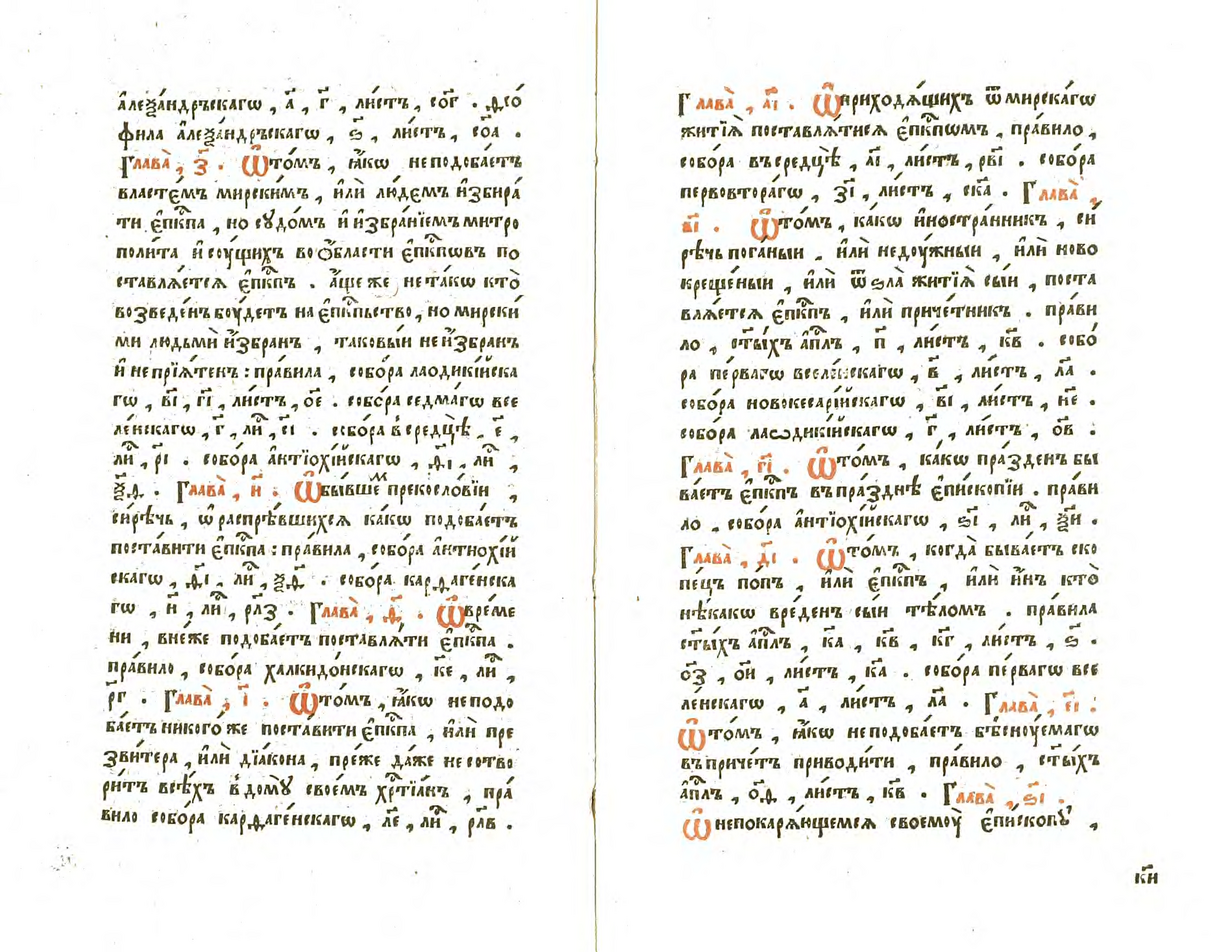 а҆леѯа́ндрьскагѡ , а҃ , г҃ , ли́стъ , со҃г . ѳ҆ео́
фила а҆леѯа́ндрьскагѡ , ѕ҃ , ли́стъ , со҃а .
Глава̀ , з҃ . Ѽто́мъ , ꙗ҆́кѡ неподоба́етъ
власте́мъ мирскимъ , и҆лѝ лю́демъ и҆збира́
ти є҆пⷭ҇кпа , но сꙋдо́мъ и҆ и҆збра́нїемъ митро
поли́та и҆ сꙋ́щихъ во ѻ҆́бласти є҆пⷭ҇кпѡвъ по
ставлѧ́етсѧ є҆пⷭ҇кпъ . а҆́ще же нета́кѡ кто̀
возведе́нъ бꙋ́детъ на є҆пⷭ҇кпьство , но мирски
ми людьмѝ и҆збранъ , таковы́и неи҆збранъ
и҆ непрїѧ́тенъ : пра́вила , собо́ра лаодикі́йска
гѡ , в҃і , г҃і , ли́стъ , о҃е . собо́ра седма́гѡ все
ле́нскагѡ , г҃ , ли́ , е҃і . собо́ра в средцѣ̀ , е҃ ,
ли́ , р҃і . собо́ра а҆нтїохі́йскагѡ , ѳ҃і , ли́ ,
ѯ҃ѳ . Глава̀ , и҃ . Ѽбы́вшеⷨ прекосло́вїи ,
си́рѣчь , ѡ҆ распрѣ́вшихсѧ ка́кѡ подоба́етъ
поста́вити є҆пⷭ҇кпа : пра́вила , собо́ра а҆нтиохі́й
скагѡ , ѳ҃і , ли́ , ѯ҃ѳ . собо́ра карѳаге́нска
гѡ , и҃ , ли́ , рл҃з . Глава̀ , ѳ҃ . Ѽвре́ме
ни , вне́же подоба́етъ поставлѧ́ти є҆пⷭ҇кпа .
пра́вило , собо́ра халкидо́нскагѡ , к҃е , ли́ ,
р҃г . Глава̀ , і҃ . Ѽто́мъ , ꙗ҆́кѡ неподо
ба́етъ никого́же поста́вити є҆пⷭ҇кпа , и҆лѝ пре
зви́тера , и҆лѝ дїа́кона , пре́же да́же несотво
ри́тъ всѣ́хъ в домꙋ̀ свое́мъ хрⷭ҇тїа́нъ , пра́
вило собо́ра карѳаге́нскагѡ , л҃е , ли́ , рл҃в .
Глава̀ , а҃і . Ѽприходѧ́щихъ ѿ мирска́гѡ
житїѧ̀ поставлѧ́тисѧ є҆пⷭ҇кпѡмъ , пра́вило ,
собо́ра въ средцѣ̀ , а҃і , ли́стъ , рв҃і . собо́ра
первовтора́гѡ , з҃і , ли́стъ , ск҃а . Глава̀ ,
в҃і . Ѽто́мъ , ка́кѡ и҆ностра́нникъ , си́
рѣчь пога́ныи , и҆лѝ недꙋ́жныи , и҆лѝ ново
креще́ныи , и҆лѝ ѿ ѕла̀ житїѧ̀ сы́и , поста
влѧ́етсѧ є҆пⷭ҇кпъ , и҆лѝ приче́тникъ . пра́ви
ло , ст҃ы́хъ а҆пⷭ҇лъ , п҃ , ли́стъ , к҃в . собо́
ра пе́рвагѡ вселе́нскагѡ , в҃ , ли́стъ , л҃а .
собо́ра новокесарі́йскагѡ , в҃і , ли́стъ , н҃е .
собо́ра лаѡдикі́йскагѡ , г҃ , ли́стъ , о҃в .
Глава̀ , г҃і . Ѽто́мъ , ка́кѡ пра́зденъ бы
ва́етъ є҆пⷭ҇кпъ въ пра́зднѣ є҆пи́скопїи . пра́ви
ло , собо́ра а҆нтїохі́йскагѡ , ѕ҃і , ли́ , ѯ҃и .
Глава̀ , д҃і . Ѽто́мъ , когда̀ быва́етъ ско
пе́цъ по́пъ , и҆лѝ є҆пⷭ҇кпъ , и҆лѝ и҆́нъ кто̀
нѣ́какѡ вре́денъ сы́и тѣ́ломъ . пра́вила
ст҃ы́хъ а҆пⷭ҇лъ , к҃а , к҃в , к҃г , ли́стъ , ѕ҃ .
о҃з , о҃и , ли́стъ , к҃а . собо́ра пе́рвагѡ все
ле́нскагѡ , а҃ , ли́стъ , л҃а . Глава̀ , е҃і :
Ѽто́мъ , ꙗ҆́кѡ неподоба́етъ бѣснꙋ́емагѡ
въ приче́тъ приводи́ти , пра́вило , ст҃ы́хъ
а҆пⷭ҇лъ , о҃ѳ , ли́стъ , к҃в . Глава̀ , ѕ҃і .
Ѽнепокарѧ́ющемсѧ своемꙋ̀ є҆пи́скопꙋ ,
к҃и